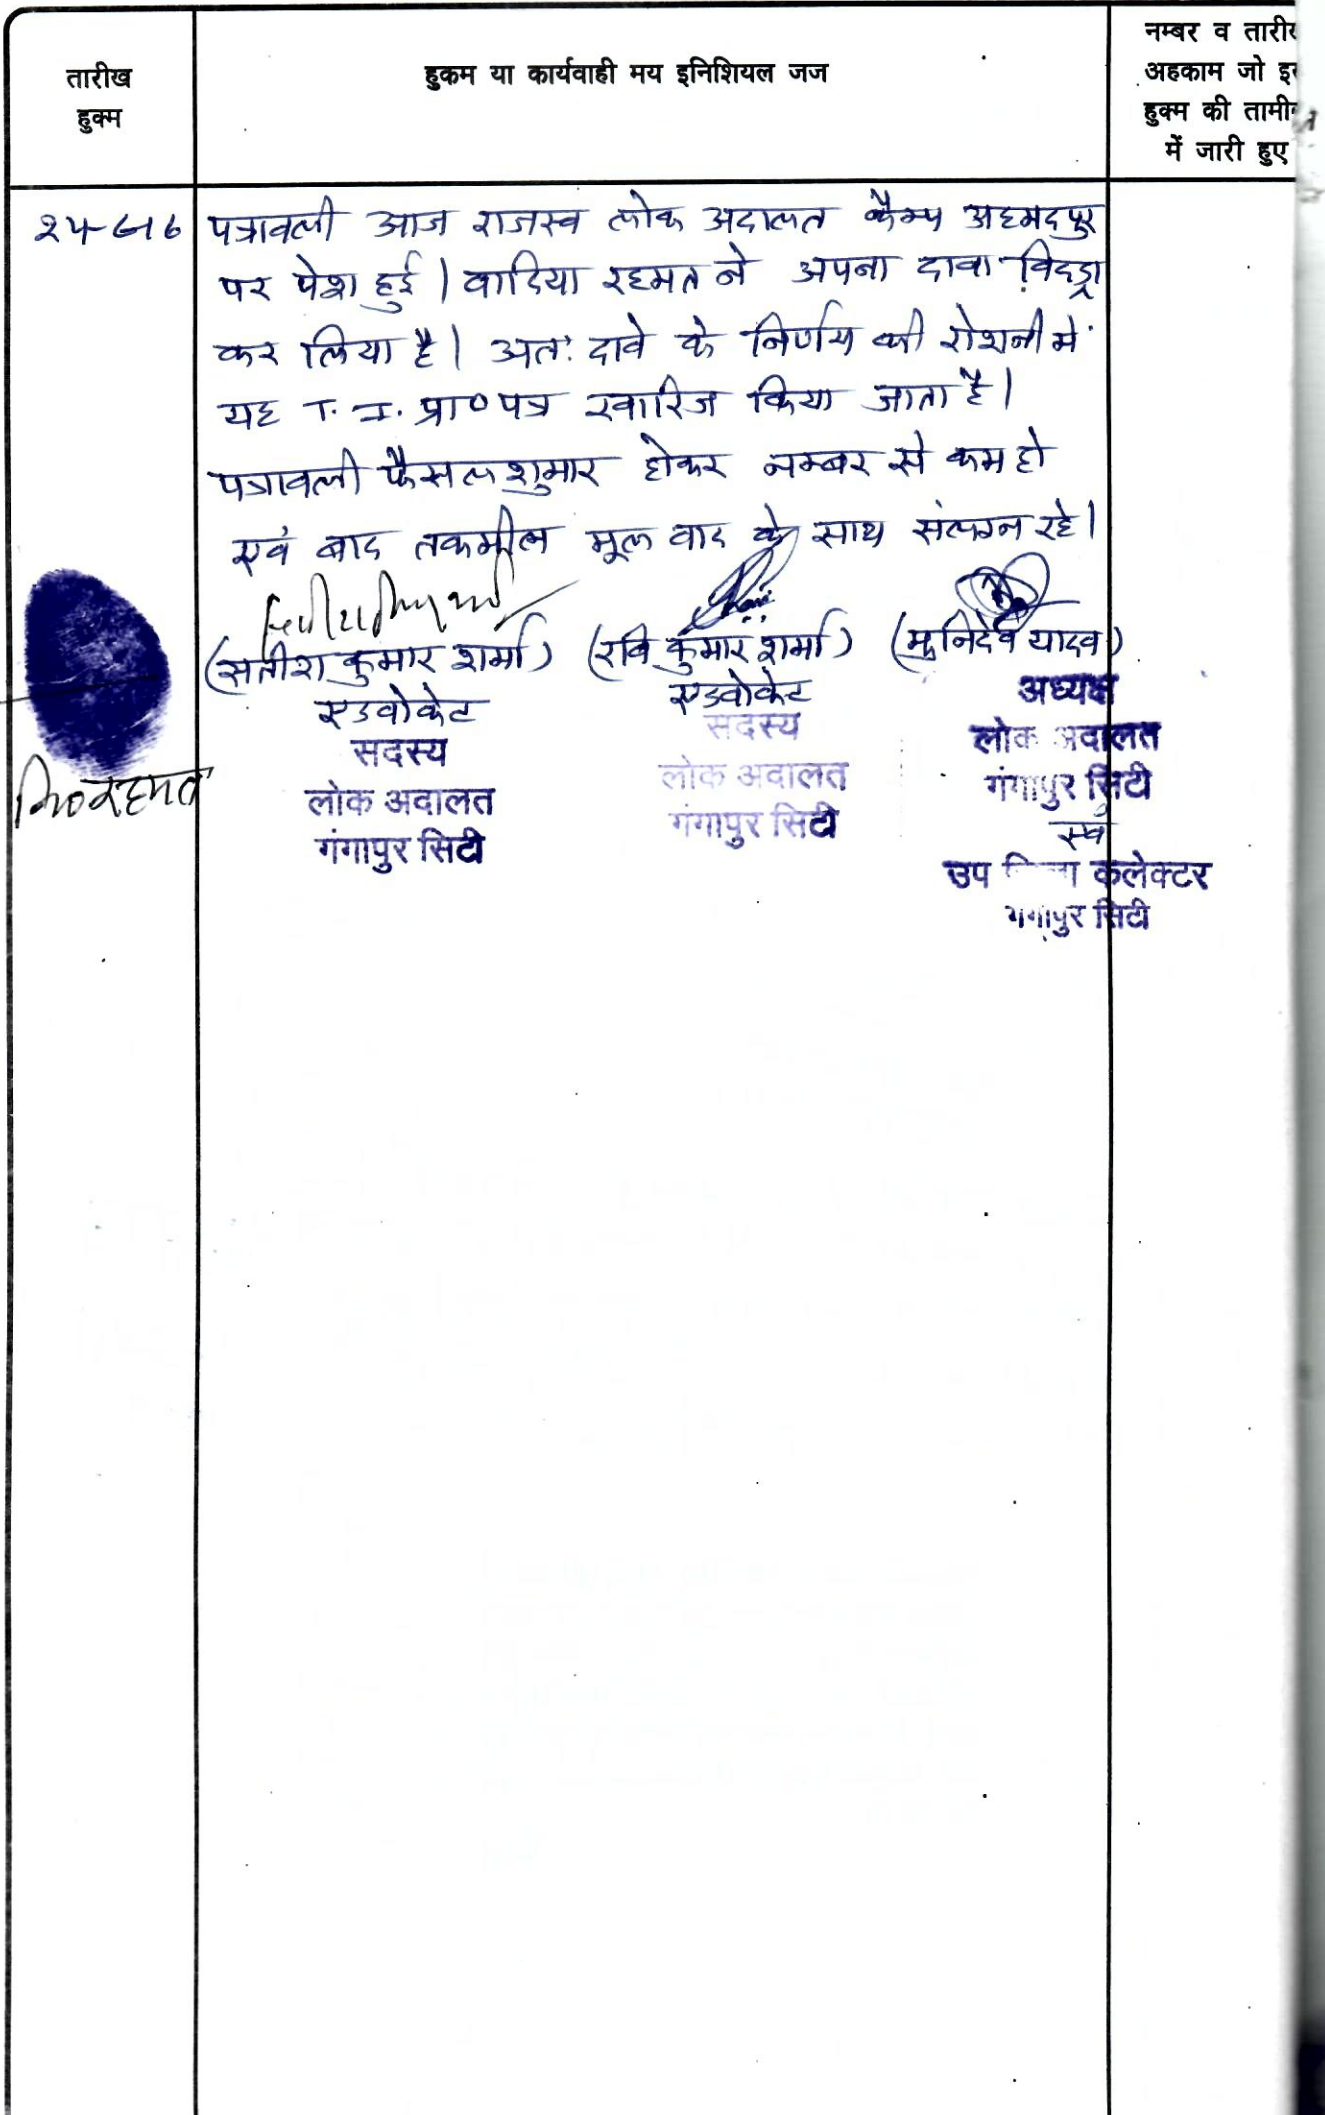 तारीख
हुक्म
हुकम या कार्यवाही मय इनिशियल जज
नम्बर व तारीख
अहकाम जो इस
हुक्म की तामील
में जारी हुए
24-6-16
पत्रावली आज राजस्व लोक अदालत कैम्प अहमदपुर
पर पेश हुई। वादिया रहमत ने अपना दावा विदड्रा
कर लिया है। अतः दावे के निर्णय की रोशनी में
यह T. I. प्रा०पत्र खारिज किया जाता है।
पत्रावली फैसल शुमार होकर नम्बर से कम हो
एवं बाद तकमील मूल वाद के साथ संलग्न रहे।
(सतीश कुमार शर्मा)
एडवोकेट
सदस्य
लोक अदालत
गंगापुर सिटी
(रवि कुमार शर्मा)
एडवोकेट
सदस्य
लोक अदालत
गंगापुर सिटी
(मुनिदेव यादव)
अध्यक्ष
लोक अदालत
गंगापुर सिटी
एवं
उप जिला कलेक्टर
गंगापुर सिटी
नि०रहमत